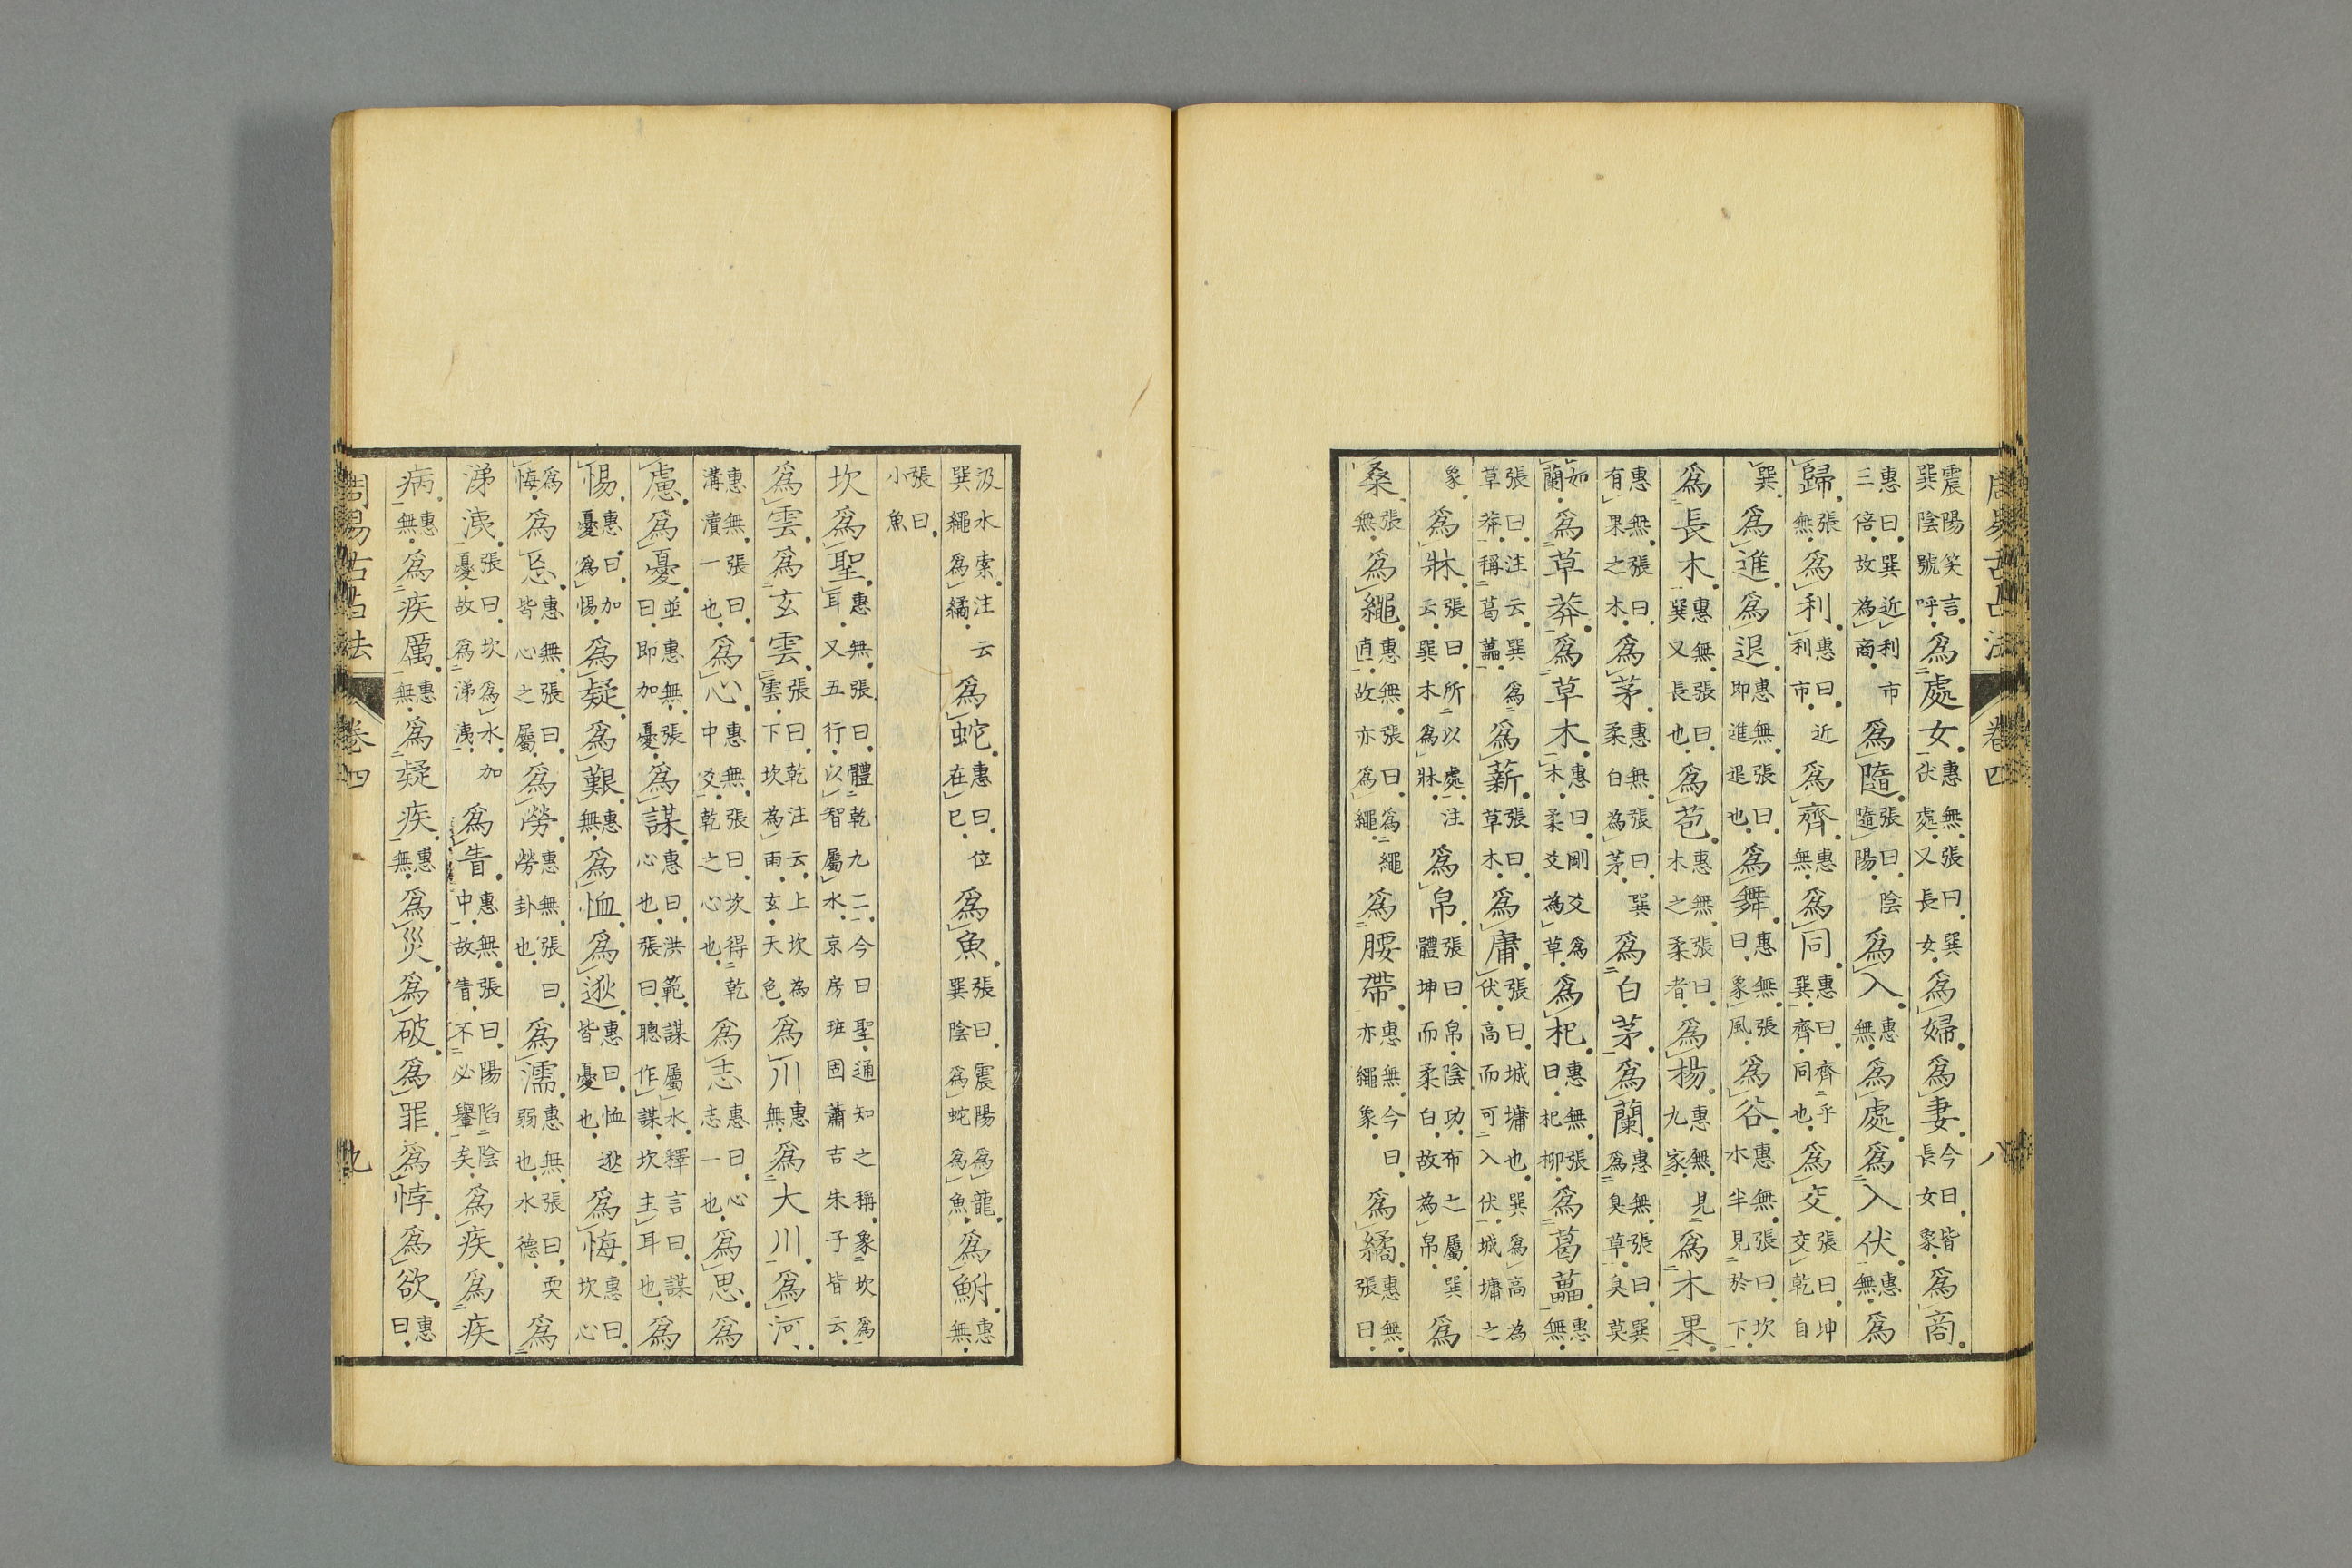 周易古占法 卷四 八
震陽笑言。巽陰號呼。為處女。惠無。張曰。巽伏處。又長女。為婦。為妻。今曰。皆長女象。為商。
惠曰。巽近利市三倍。故為商。為隨。張曰。陰隨陽。為入。惠無。為處。為入伏。惠無。為
歸。張無。為利。惠曰。近利市。為齊。惠無。為同。惠曰。齊乎巽。齊。同也。為交。張曰。坤交乾。自
巽。為進。為退。惠無。張曰。即進退也。為舞。惠無。張曰。象風。為谷。惠無。張曰。坎水半見於下。
為長木。惠無。張曰。巽又長也。為苞。惠無。張曰。木之柔者。為楊。惠無。見九家。為木果。
惠無。張曰。有果之木。為茅。惠無。張曰。巽柔白為茅。為白茅。為蘭。惠無。張曰。巽為臭草。臭莫
如蘭。為草莽。為草木。惠曰。剛爻為木。柔爻為草。為杞。惠無。張曰。杞柳。為葛藟。惠無。
張曰。注云。巽為草莽。稱葛藟。為薪。張曰。草木。為庸。張曰。城墉也。巽為高為伏。高而可入伏。城墉之
象。為牀。張曰。所以處。注云。巽木為牀。為帛。張曰。帛。陰功。布之屬。巽體坤而柔白。故為帛。為
桑。張無。為繩。惠無。張曰。為繩直。故亦為繩。為腰帶。惠無。今曰。亦繩象。為繘。惠無。張曰。
汲水索。注云。巽繩為繘。為蛇。惠曰。位在巳。為魚。張曰。震陽為龍。巽陰為蛇為魚。為鮒。惠無。
張曰。小魚
坎為聖。惠無。張曰。體乾九二。今曰。聖。通知之稱。象坎為耳。又五行。以智屬水。京房班固蕭吉朱子皆云。
為雲。為玄雲。張曰。乾注云。上坎為雲。下坎為雨。玄。天色。為川。惠無。為大川。為河。
惠無。張曰。溝瀆一也。為心。惠無。張曰。坎得乾中爻。乾之心也。為志。惠曰。心志一也。為思。為
慮。為憂。並惠無。張曰。即加憂。為謀。惠曰。洪範。謀屬水。釋言曰。謀。心也。張曰。聰作謀。坎主耳也。為
惕。惠曰。加憂為惕。為疑。為艱。惠無。為恤。為逖。惠曰。恤逖皆憂也。為悔。惠曰。坎心
為悔。為忘。惠無。張曰。皆心之屬。為勞。惠無。張曰。勞卦也。為濡。惠無。張曰。耎弱也。水德。為
涕洟。張曰。坎為水。加憂。故為涕洟。為眚。惠無。張曰。陽陷陰中。故眚。不必轝矣。為疾。為疾
病。惠無。為疾厲。惠無。為疑疾。惠無。為災。為破。為罪。為悖。為欲。惠曰。
周易古占法 卷四 九